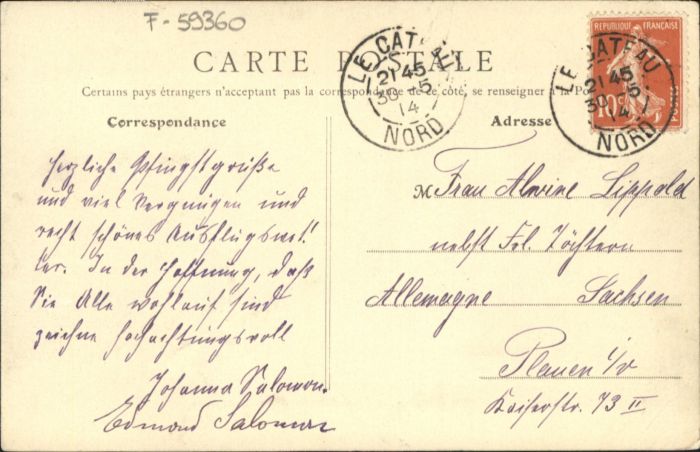 F-59360
CARTE POSTALE
Certains pays étrangers n'acceptant pas la correspondance de ce côté, se renseigner à la Po
Correspondance
Adresse
LE CATEAU
21 45
30 - 5
14
NORD
LE CATEAU
21 45
30 - 5
14
NORD
REPUBLIQUE FRANÇAISE
10c
POSTES
Herzliche Pfingstgrüße
und viel Vergnügen und
recht schönes Ausflugswet-
ter. In der Hoffnung, daß
Sie Alle wohlauf sind
zeichne hochachtungsvoll
Johanna Salomon.
Edmond Salomon
M Frau Alwine Lippold
nebst Frl. Töchtern
Allemagne Sachsen
Plauen i/V
Kaiserstr. 73 II